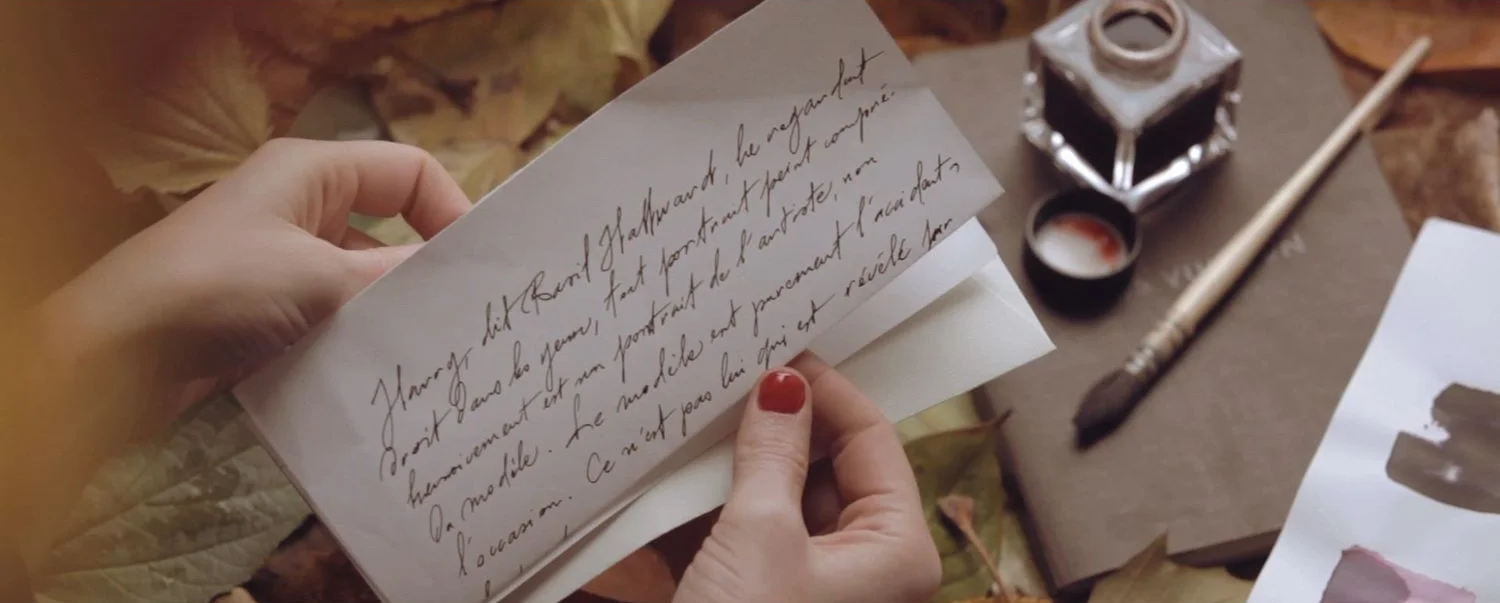 Harry, dit Basil Hallward, le regardant
droit dans les yeux, tout portrait peint compré.
hensivement est un portrait de l'artiste, non
du modèle. Le modèle est purement l'accident,
l'occasion. Ce n'est pas lui qui est révélé par